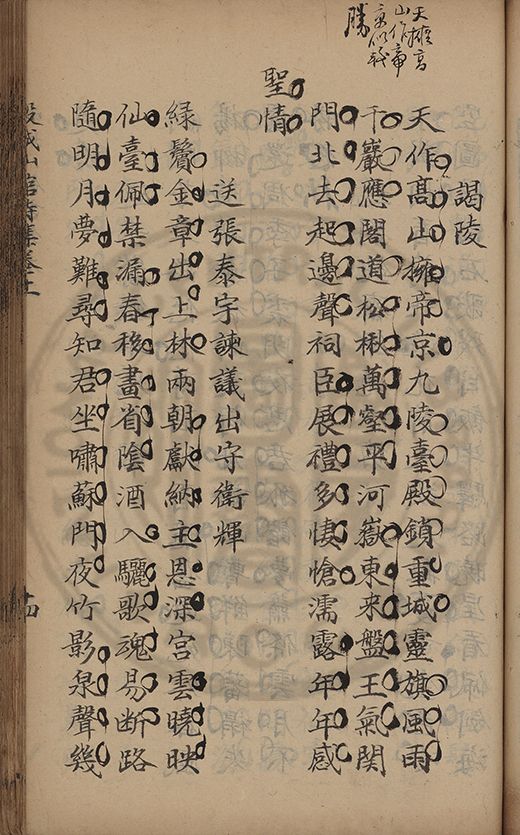 天擁高
山作帝
京似我
勝
謁陵
天作高山擁帝京九陵臺殿鎖重城靈旗風雨
千巖應閣道松楸萬壑平河嶽東来盤王氣関
門北去起邊聲祠臣展禮多悽愴濡露年年感
聖情
送張泰宇諫議出守衛輝
緑鬢金章出上林兩朝獻納主恩深宮雲曉映
仙臺佩禁漏春移畫省陰酒入驪歌魂易断路
隨明月夢難尋知君坐嘯蘇門夜竹影泉聲幾
山舘詩集卷十